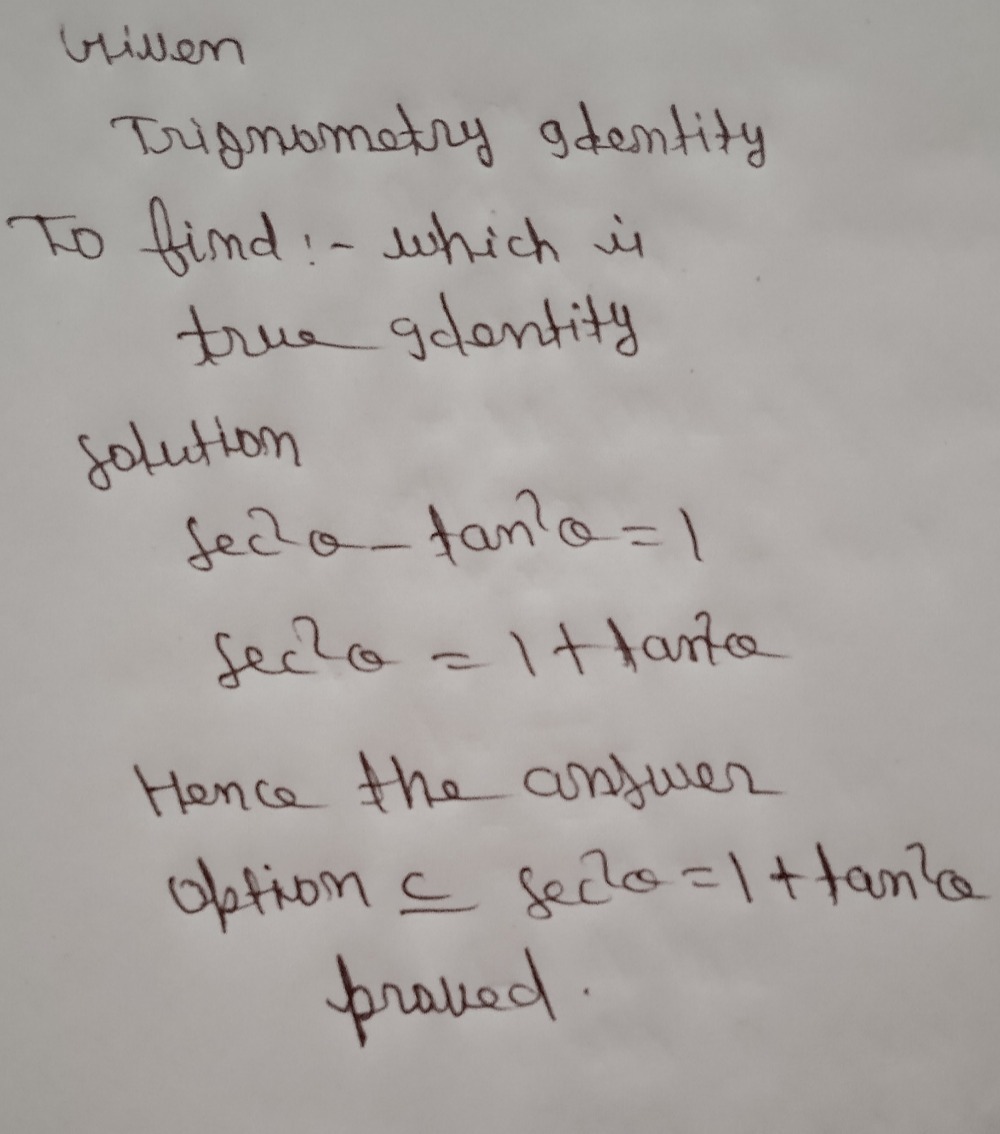 Given
Trignometry Identity
To find :- which is
true Identity
Solution
sec²θ - tan²θ = 1
sec²θ = 1 + tan²θ
Hence the answer
option c sec²θ = 1 + tan²θ
proved.